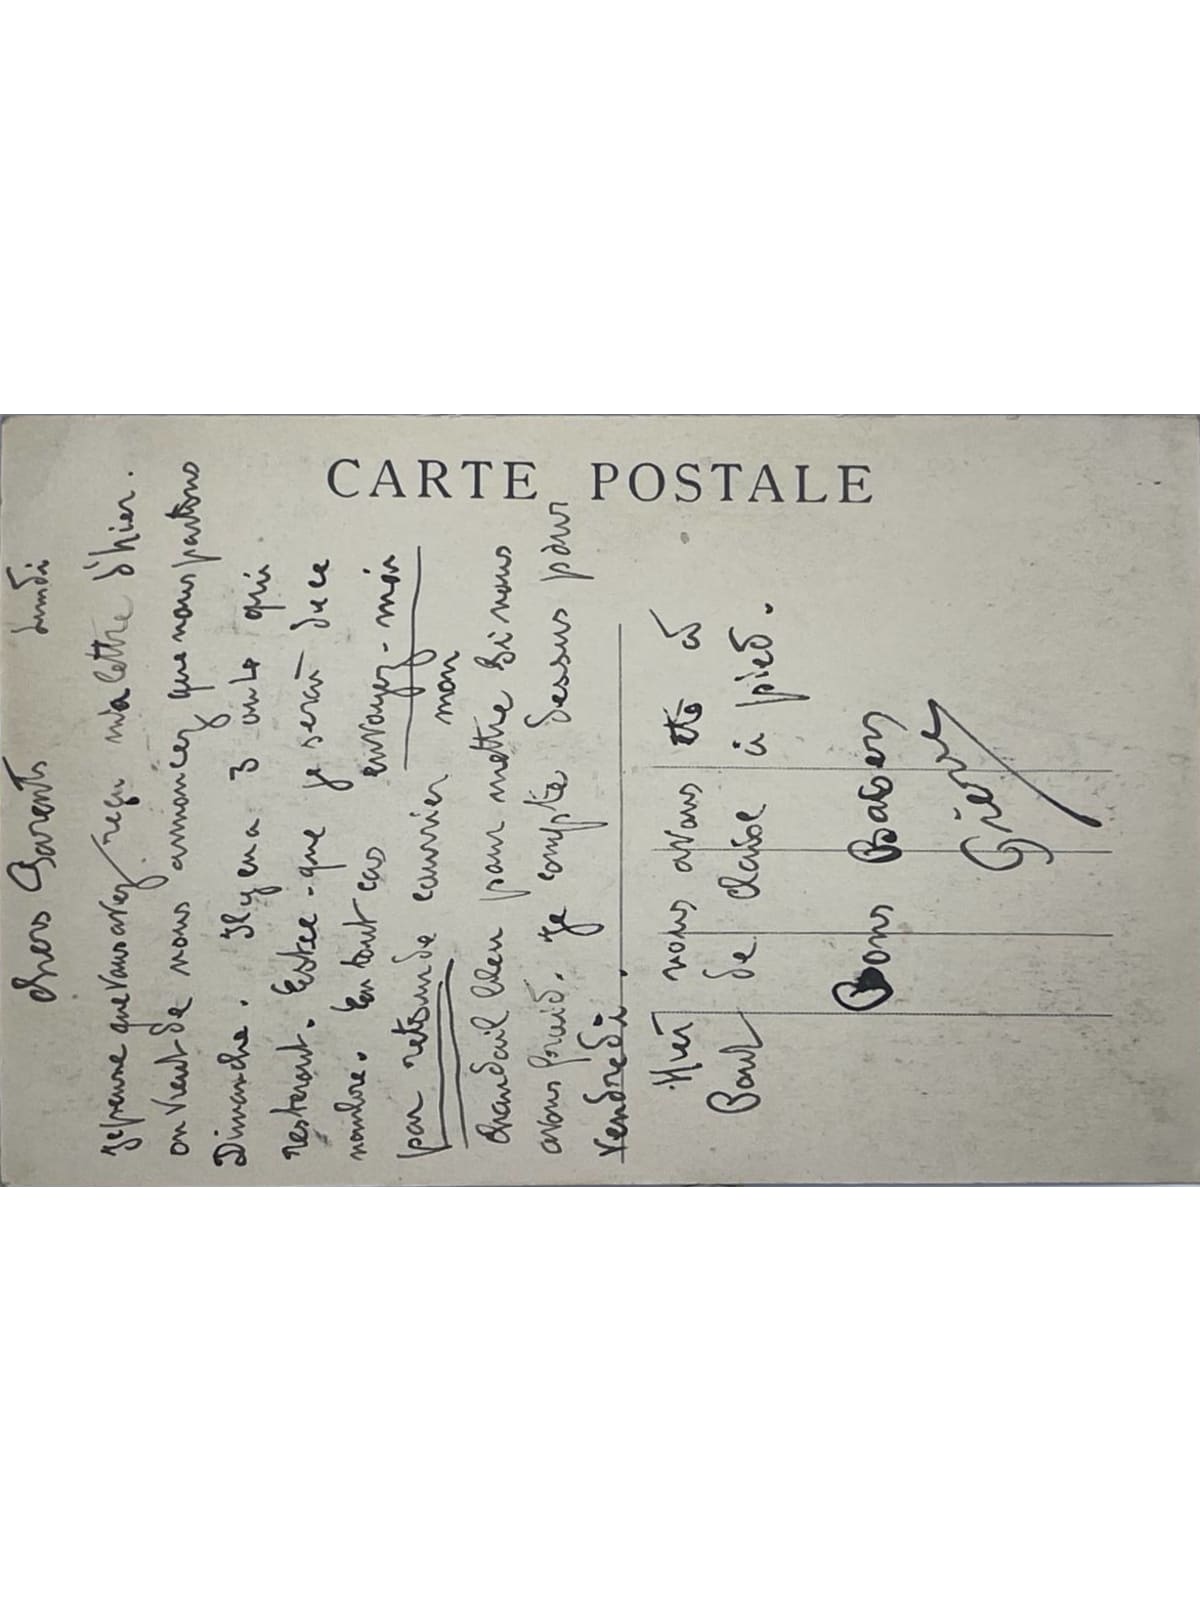 CARTE POSTALE
Lundi
Chers Parents
Je pense que vous avez reçu ma lettre d'hier.
on vient de nous annoncez que nous partons
Dimanche. Il y en a 3 ou 4 qui
resteront. Estce-que je serai de ce
nombre. En tout cas envoyez-moi
par retour de courrier mon
chandail bleu pour mettre si nous
avons froid. Je compte dessus pour
Vendredi.
Hier nous avons été à
Pont de Claix à pied.
Bons Baisers
Pierre